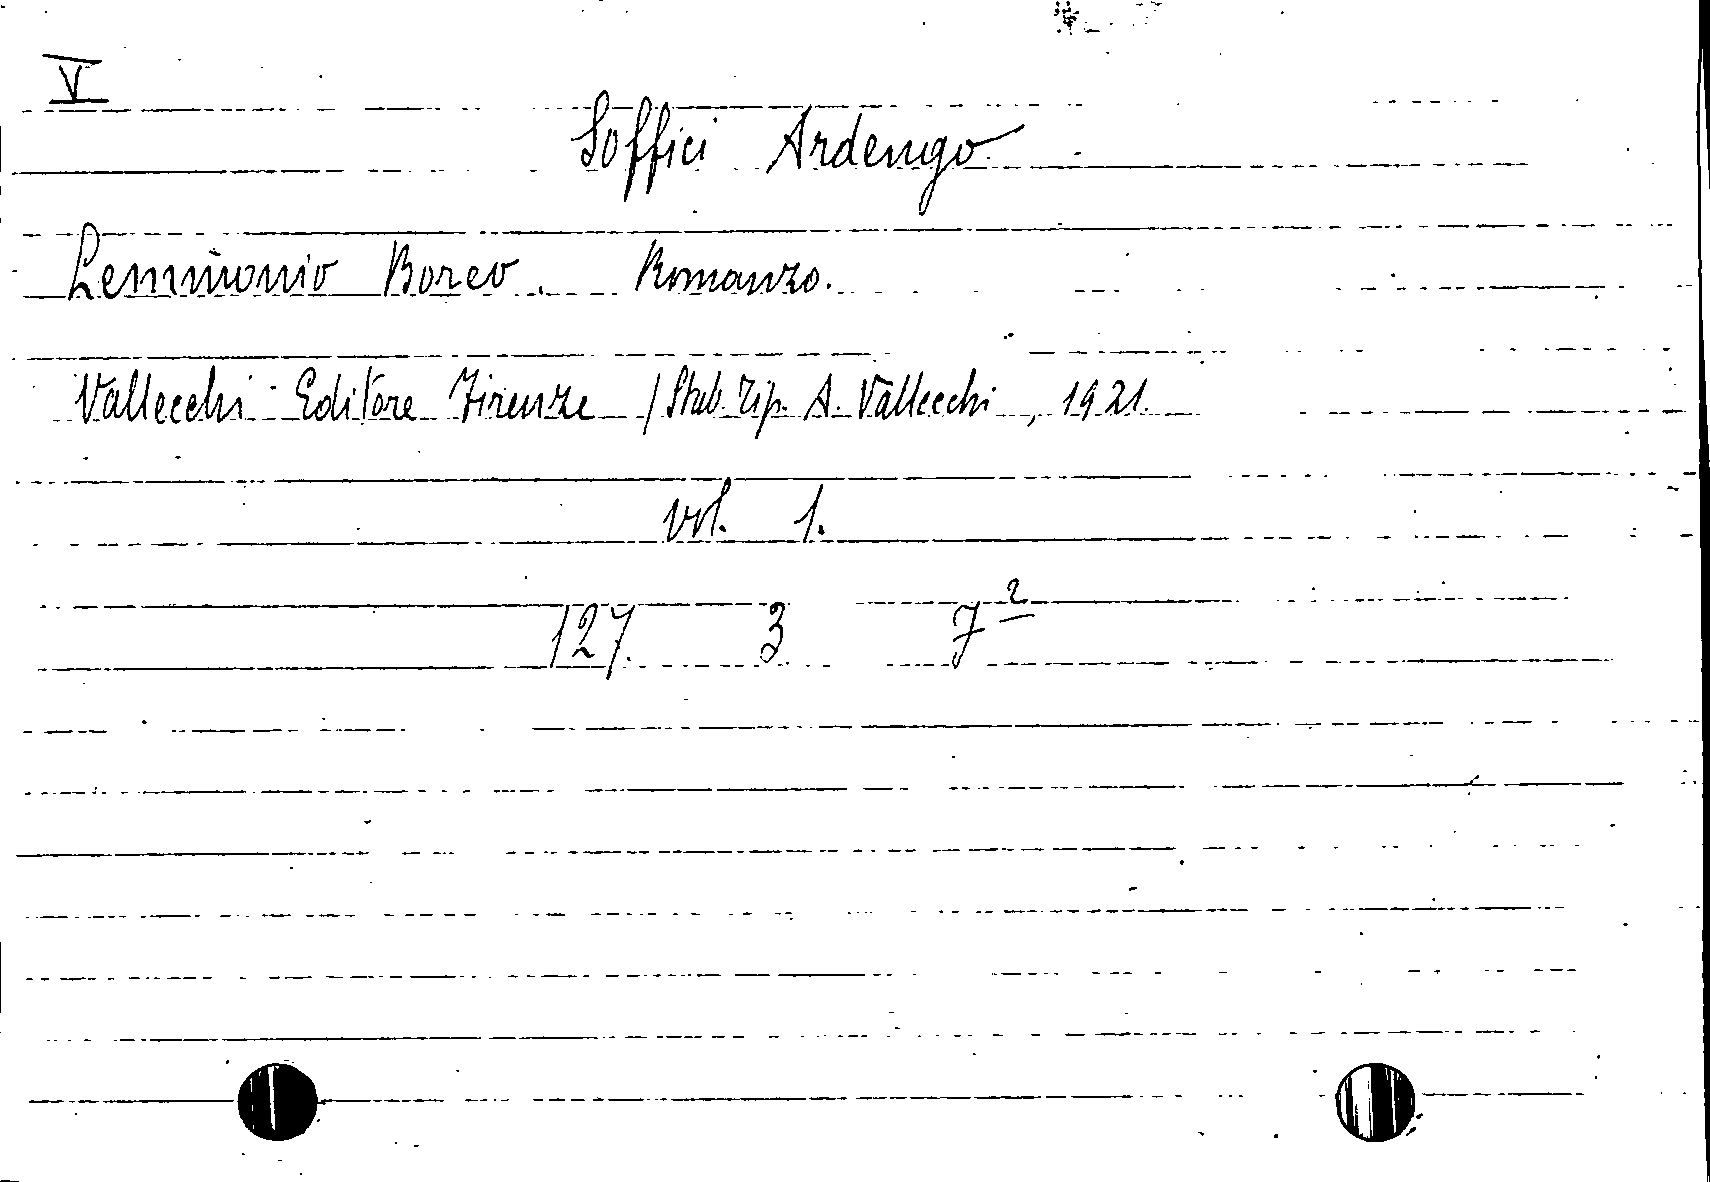 V
Soffici Ardengo
Lemmonio Boreo. Romanzo.
Vallecchi Editore Firenze /Stab. Tip. A. Vallecchi, 1921.
vol. 1.
127. 3 7²